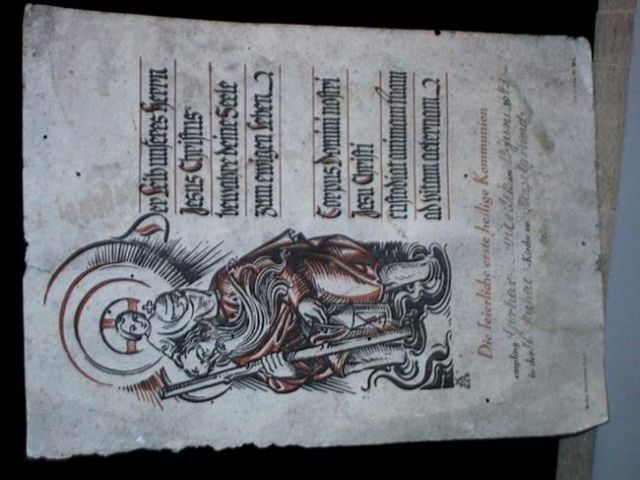 er Leib unseres Herrn
Jesus Christus
bewahre deine Seele
zum ewigen Leben
Corpus Domini nostri
Jesu Christi
custodiat animam tuam
ad vitam aeternam
Die feierliche erste heilige Kommunion
empfing
in der Kirche zu